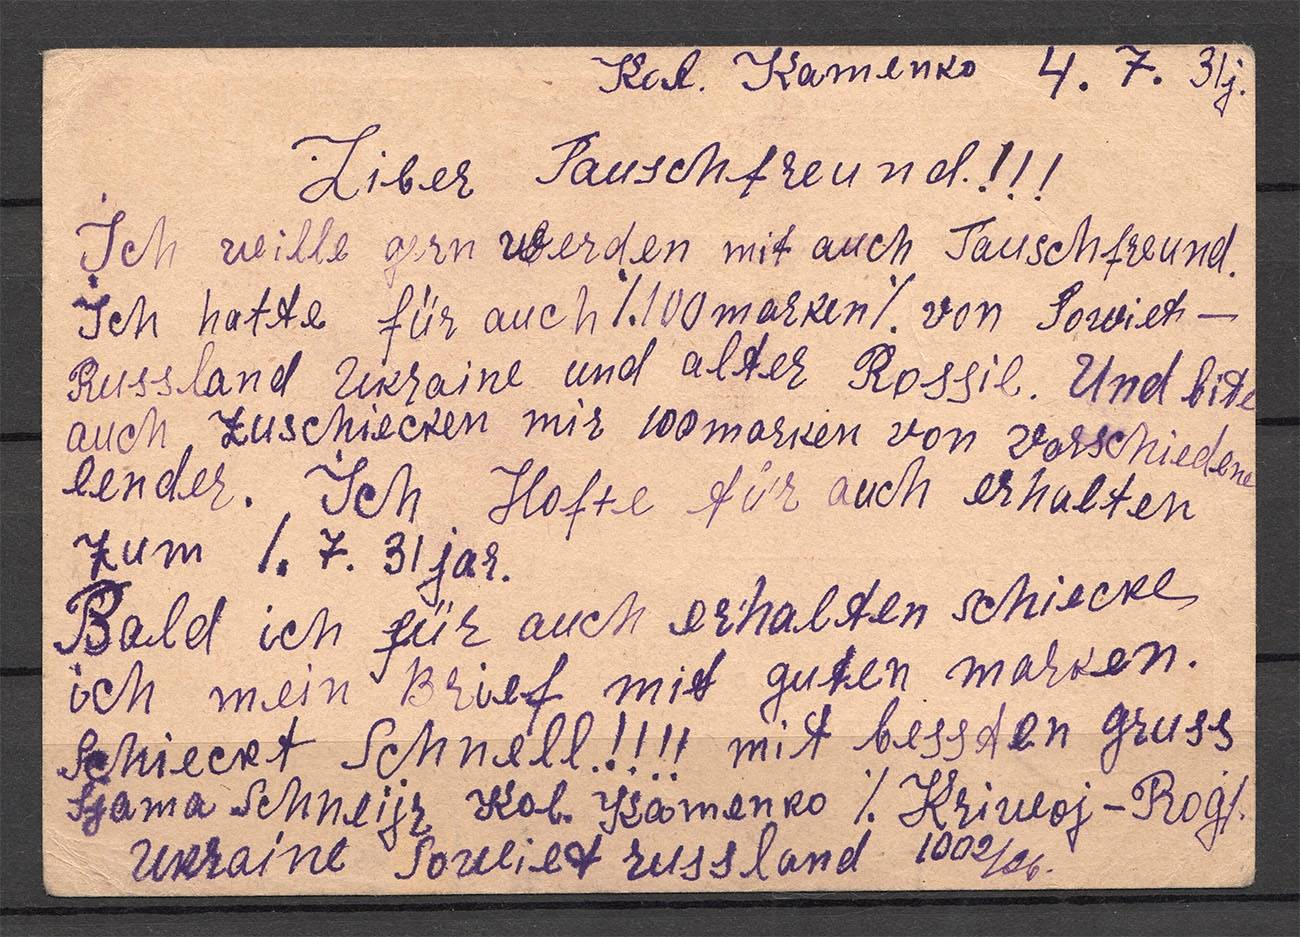 Kol. Kamenko 4. 7. 31j.
Liber Tauschfreund!!!
Ich wille gern werden mit auch Tauschfreund.
Ich hatte für auch /.100 marken/. von Sowiet-
Russland Ukraine und alter Rossil. Und bite
auch zuschiecken mir 100 marken von vorschiedene
lender. Ich Hofte für auch erhalten
zum 1. 7. 31 jar.
Bald ich für auch erhalten schiecke
ich mein Brief mit guten marken.
Schieckt Schnell!!!! mit bessten gruss
Schneijr Kol. Kamenko /. Kriwoj-Rog/.
Ukraine Sowiet russland